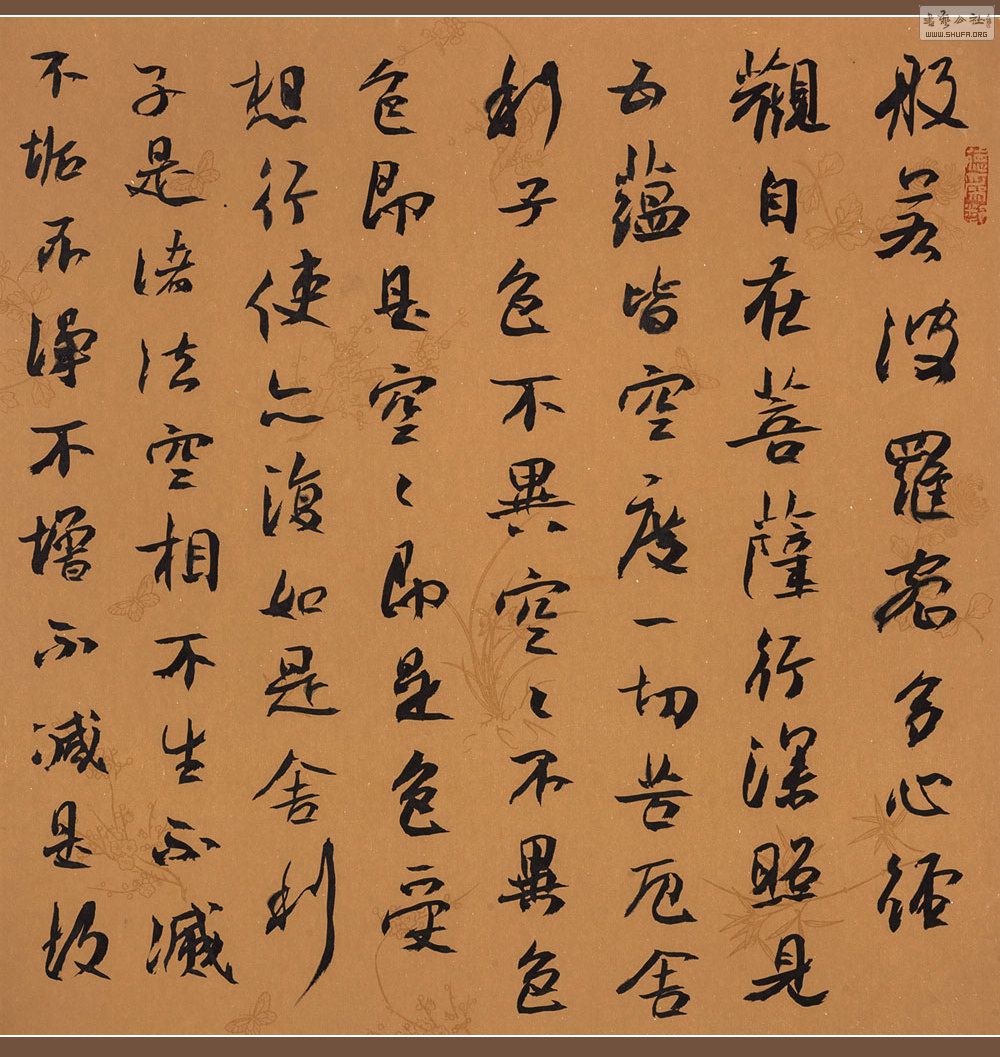 般若波羅蜜多心經
觀自在菩薩行深照見
五蘊皆空度一切苦厄舍
利子色不異空〻不異色
色即是空〻即是色受
想行使亦復如是舍利
子是諸法空相不生不滅
不垢不淨不增不減是故
書藝公社
WWW.SHUFA.ORG